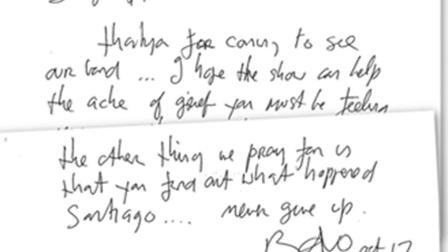 thankya for coming to see
our band ... I hope the show can help
the ache of grief you must be feeling
the other thing we pray for is
that you find out what happened
Santiago .... never give up.
Bono oct 12